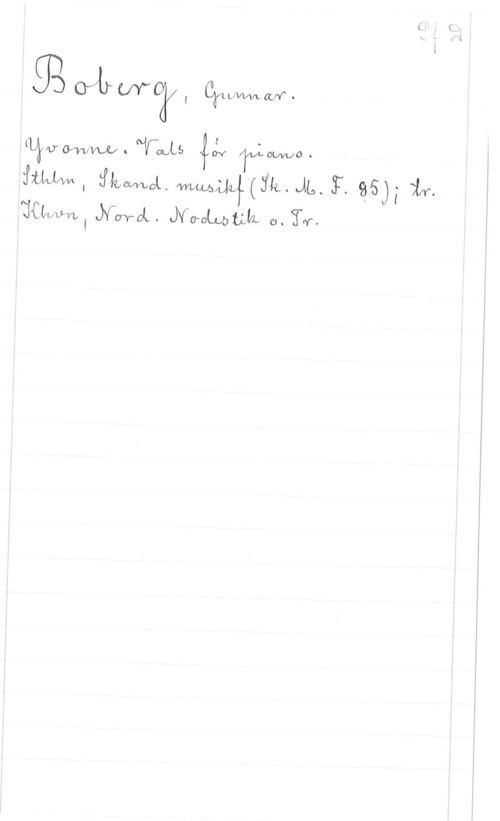 Boberg, Gunnar.
Yvonne. Vals för piano.
Sthlm, Skand. musikf (Sk. M. F. 95); tr.
Khvn, Nord. Nodestik o. Tr.